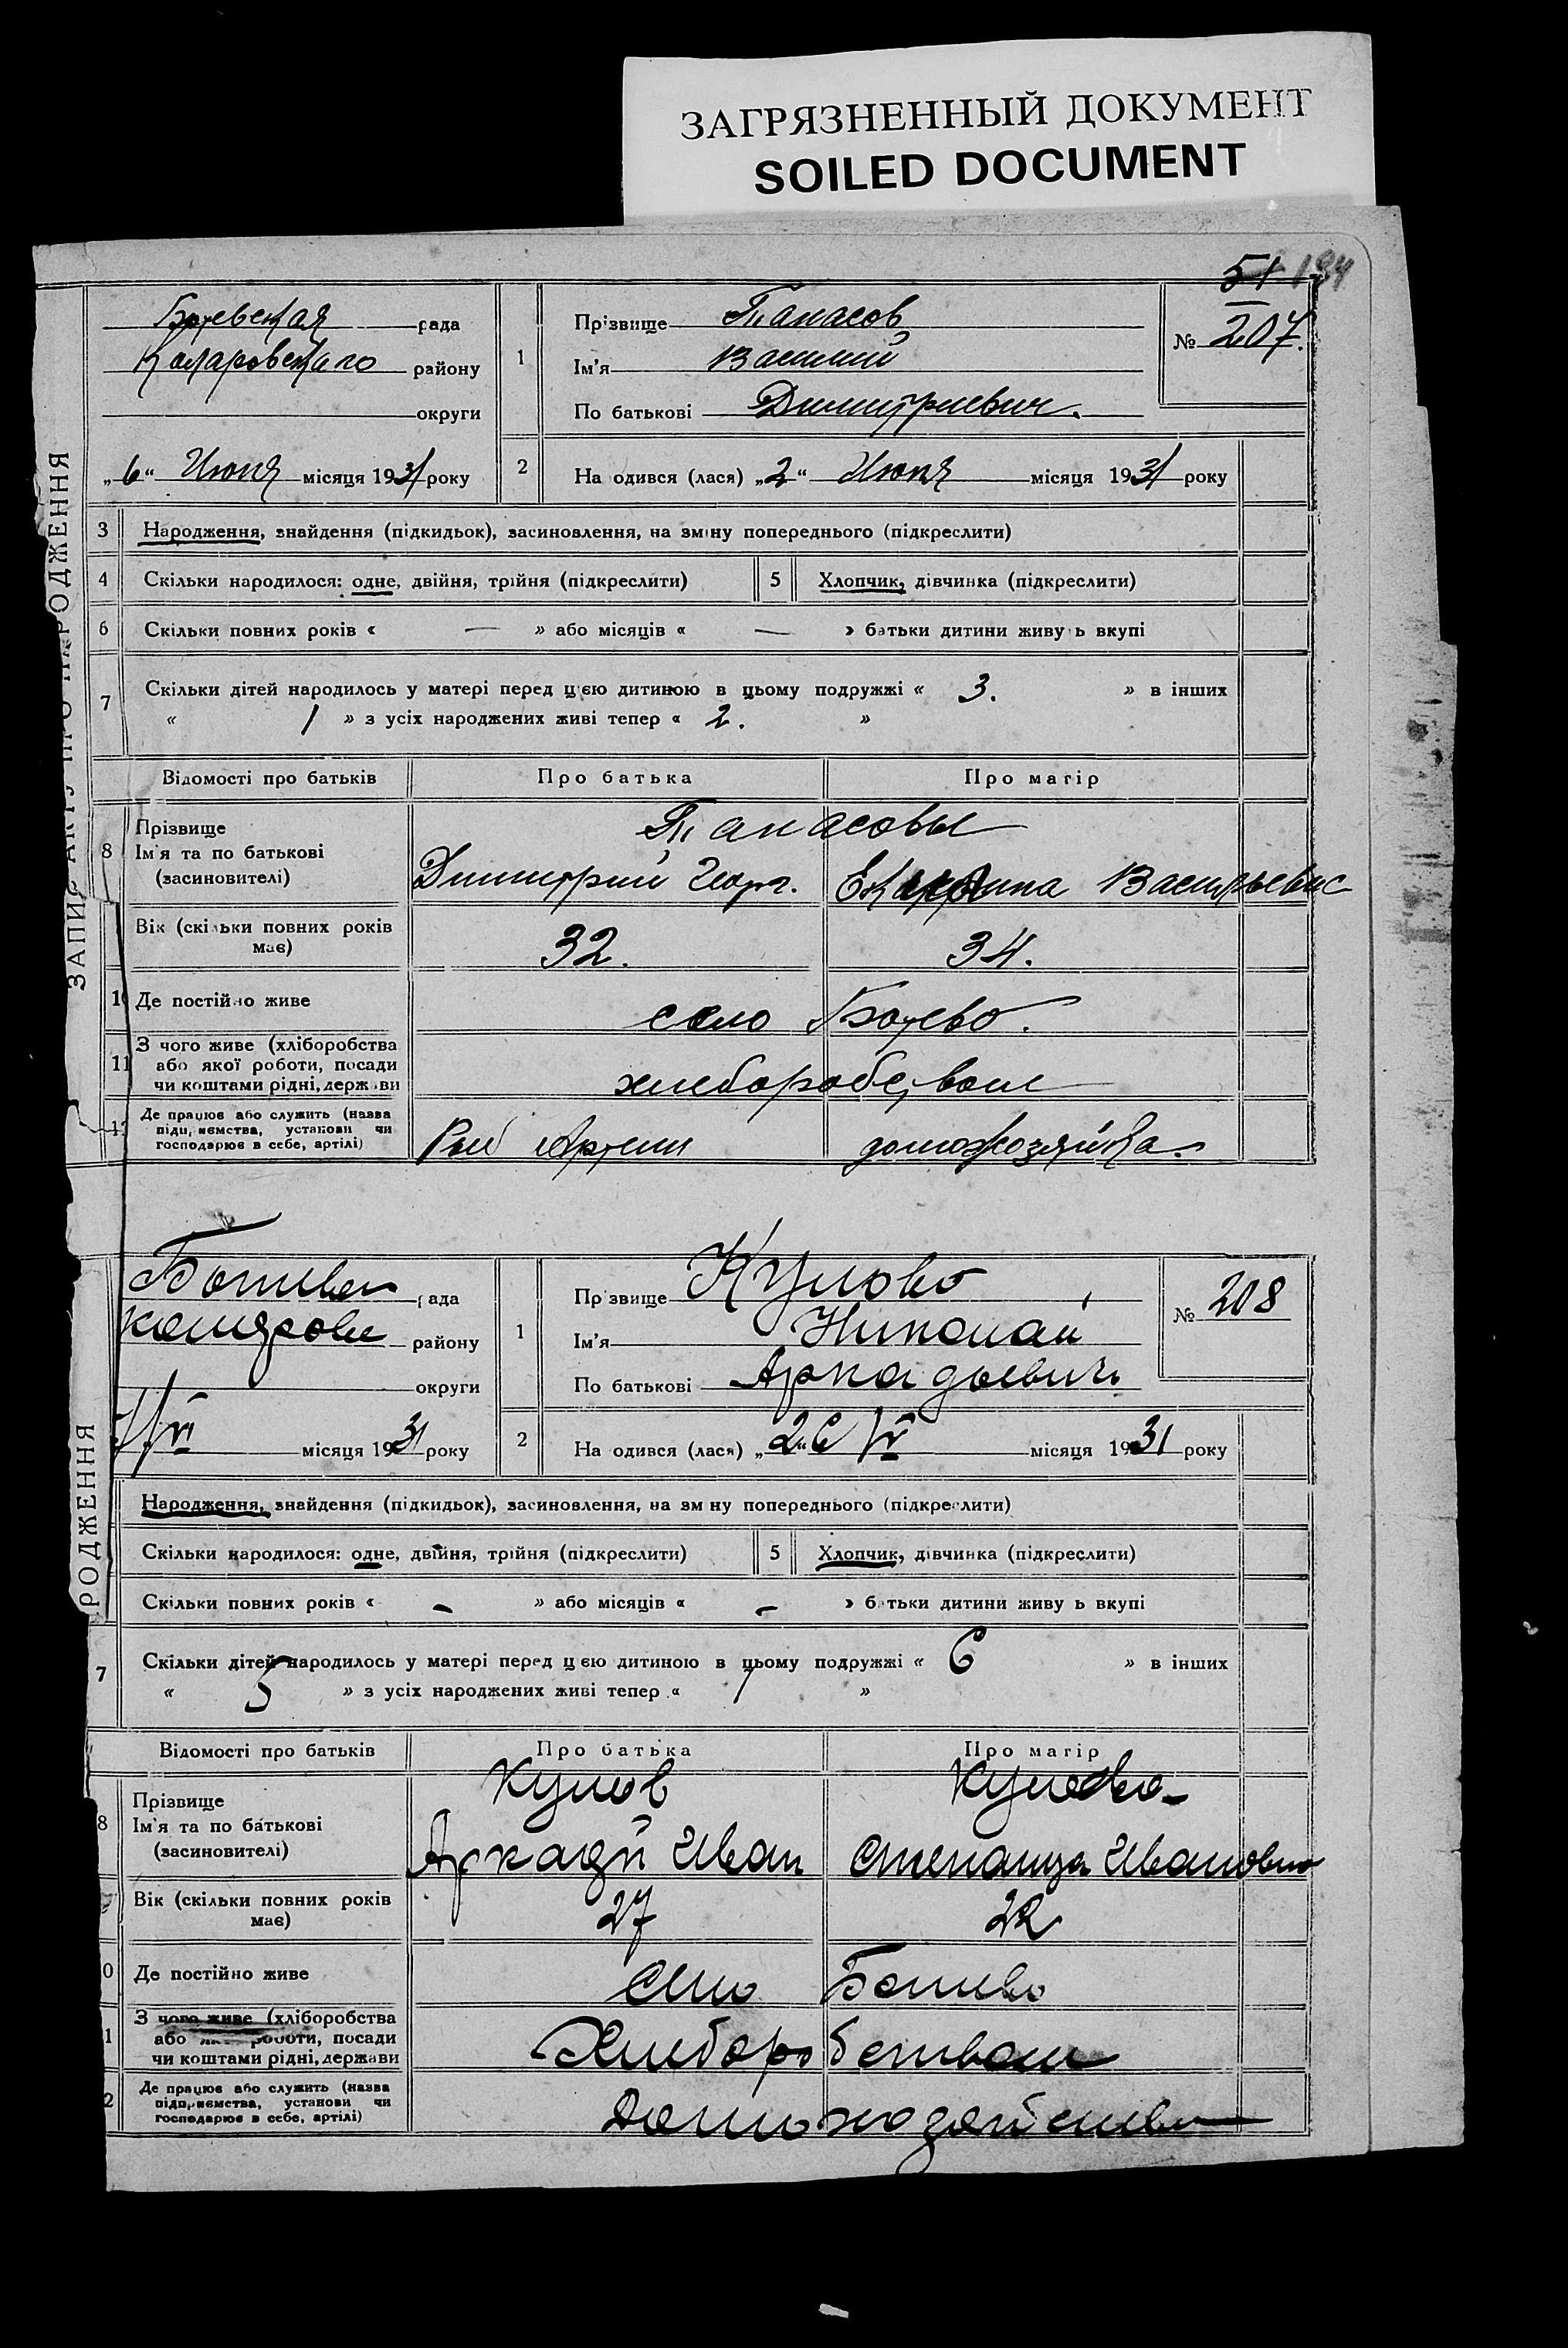 ЗАГРЯЗНЕННЫЙ ДОКУМЕНТ
SOILED DOCUMENT
51 194
ЗАПИС АКТУ ПРО НАРОДЖЕННЯ
Ботевская рада
Коларовского району
округи
„6“ Июня місяця 1931 року
1
Прізвище Танасов
Ім'я Василий
По батькові Димитриевич.
№ 207.
2 На одився (лася) „2“ Июня місяця 1931 року
3 Народження, знайдення (підкидьок), засиновлення, на зміну попереднього (підкреслити)
4 Скільки народилося: одне, двійня, трійня (підкреслити) 5 Хлопчик, дівчинка (підкреслити)
6 Скільки повних років « — » або місяців « — » батьки дитини живу ь вкупі
7 Скільки дітей народилось у матері перед цією дитиною в цьому подружжі « 3. » в інших
« 1 » з усіх народжених живі тепер « 2. »
Відомості про батьків Про батька Про матір
8 Прізвище Танасовы
Ім'я та по батькові
(засиновителі) Димитрий Георг. Екатерина Васильевнс
Вік (скільки повних років має) 32. 34.
10 Де постійно живе село Ботево.
11 З чого живе (хліборобства
або якої роботи, посади
чи коштами рідні, держави хлеборобством
12 Де працює або служить (назва
підприємства, установи чи
господарює в себе, артілі) Рыб Артели домохозяйка.
РОДЖЕННЯ
рада
району
округи
місяця 1931 року
1
Прізвище Кулово
Ім'я Николай
По батькові Аркадьевичь
№ 208
2 На одився (лася) 1931 року
Народження, знайдення (підкидьок), засиновлення, на зм ну попереднього (підкреслити)
Скільки народилося: одне, двійня, трійня (підкреслити) 5 Хлопчик, дівчинка (підкреслити)
Скільки повних років « - » або місяців « - » батьки дитини живу ь вкупі
7 Скільки дітей народилось у матері перед цією дитиною в цьому подружжі « 6 » в інших
« 5 » з усіх народжених живі тепер « 1 »
Відомості про батьків Про батька Про матір
8 Прізвище Кулов Кулова
Ім'я та по батькові
(засиновителі) Аркадй Иван Степанида Ивановна
Вік (скільки повних років має) 27 22
0 Де постійно живе Село Ботево
1 З чого живе (хліборобства
або якої роботи, посади
чи коштами рідні, держави Хлеборобством
2 Де працює або служить (назва
підприємства, установи чи
господарює в себе, артілі)